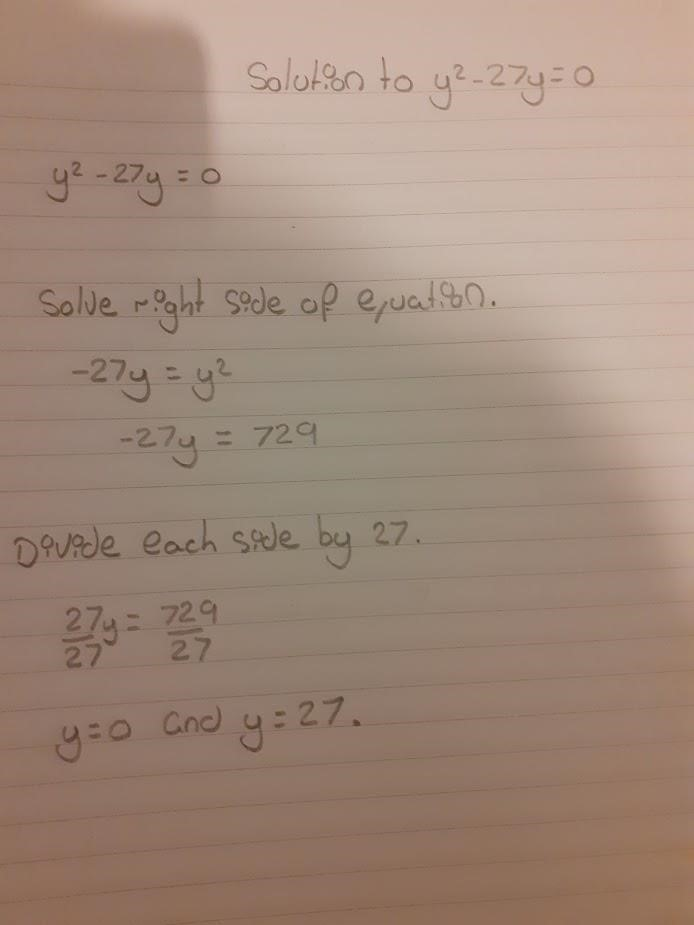 Solution to y²-27y=0
y² -27y = 0
Solve right side of equation.
-27y = y²
-27y = 729
Divide each side by 27.
27y = 729
27 27
y=0 and y=27.